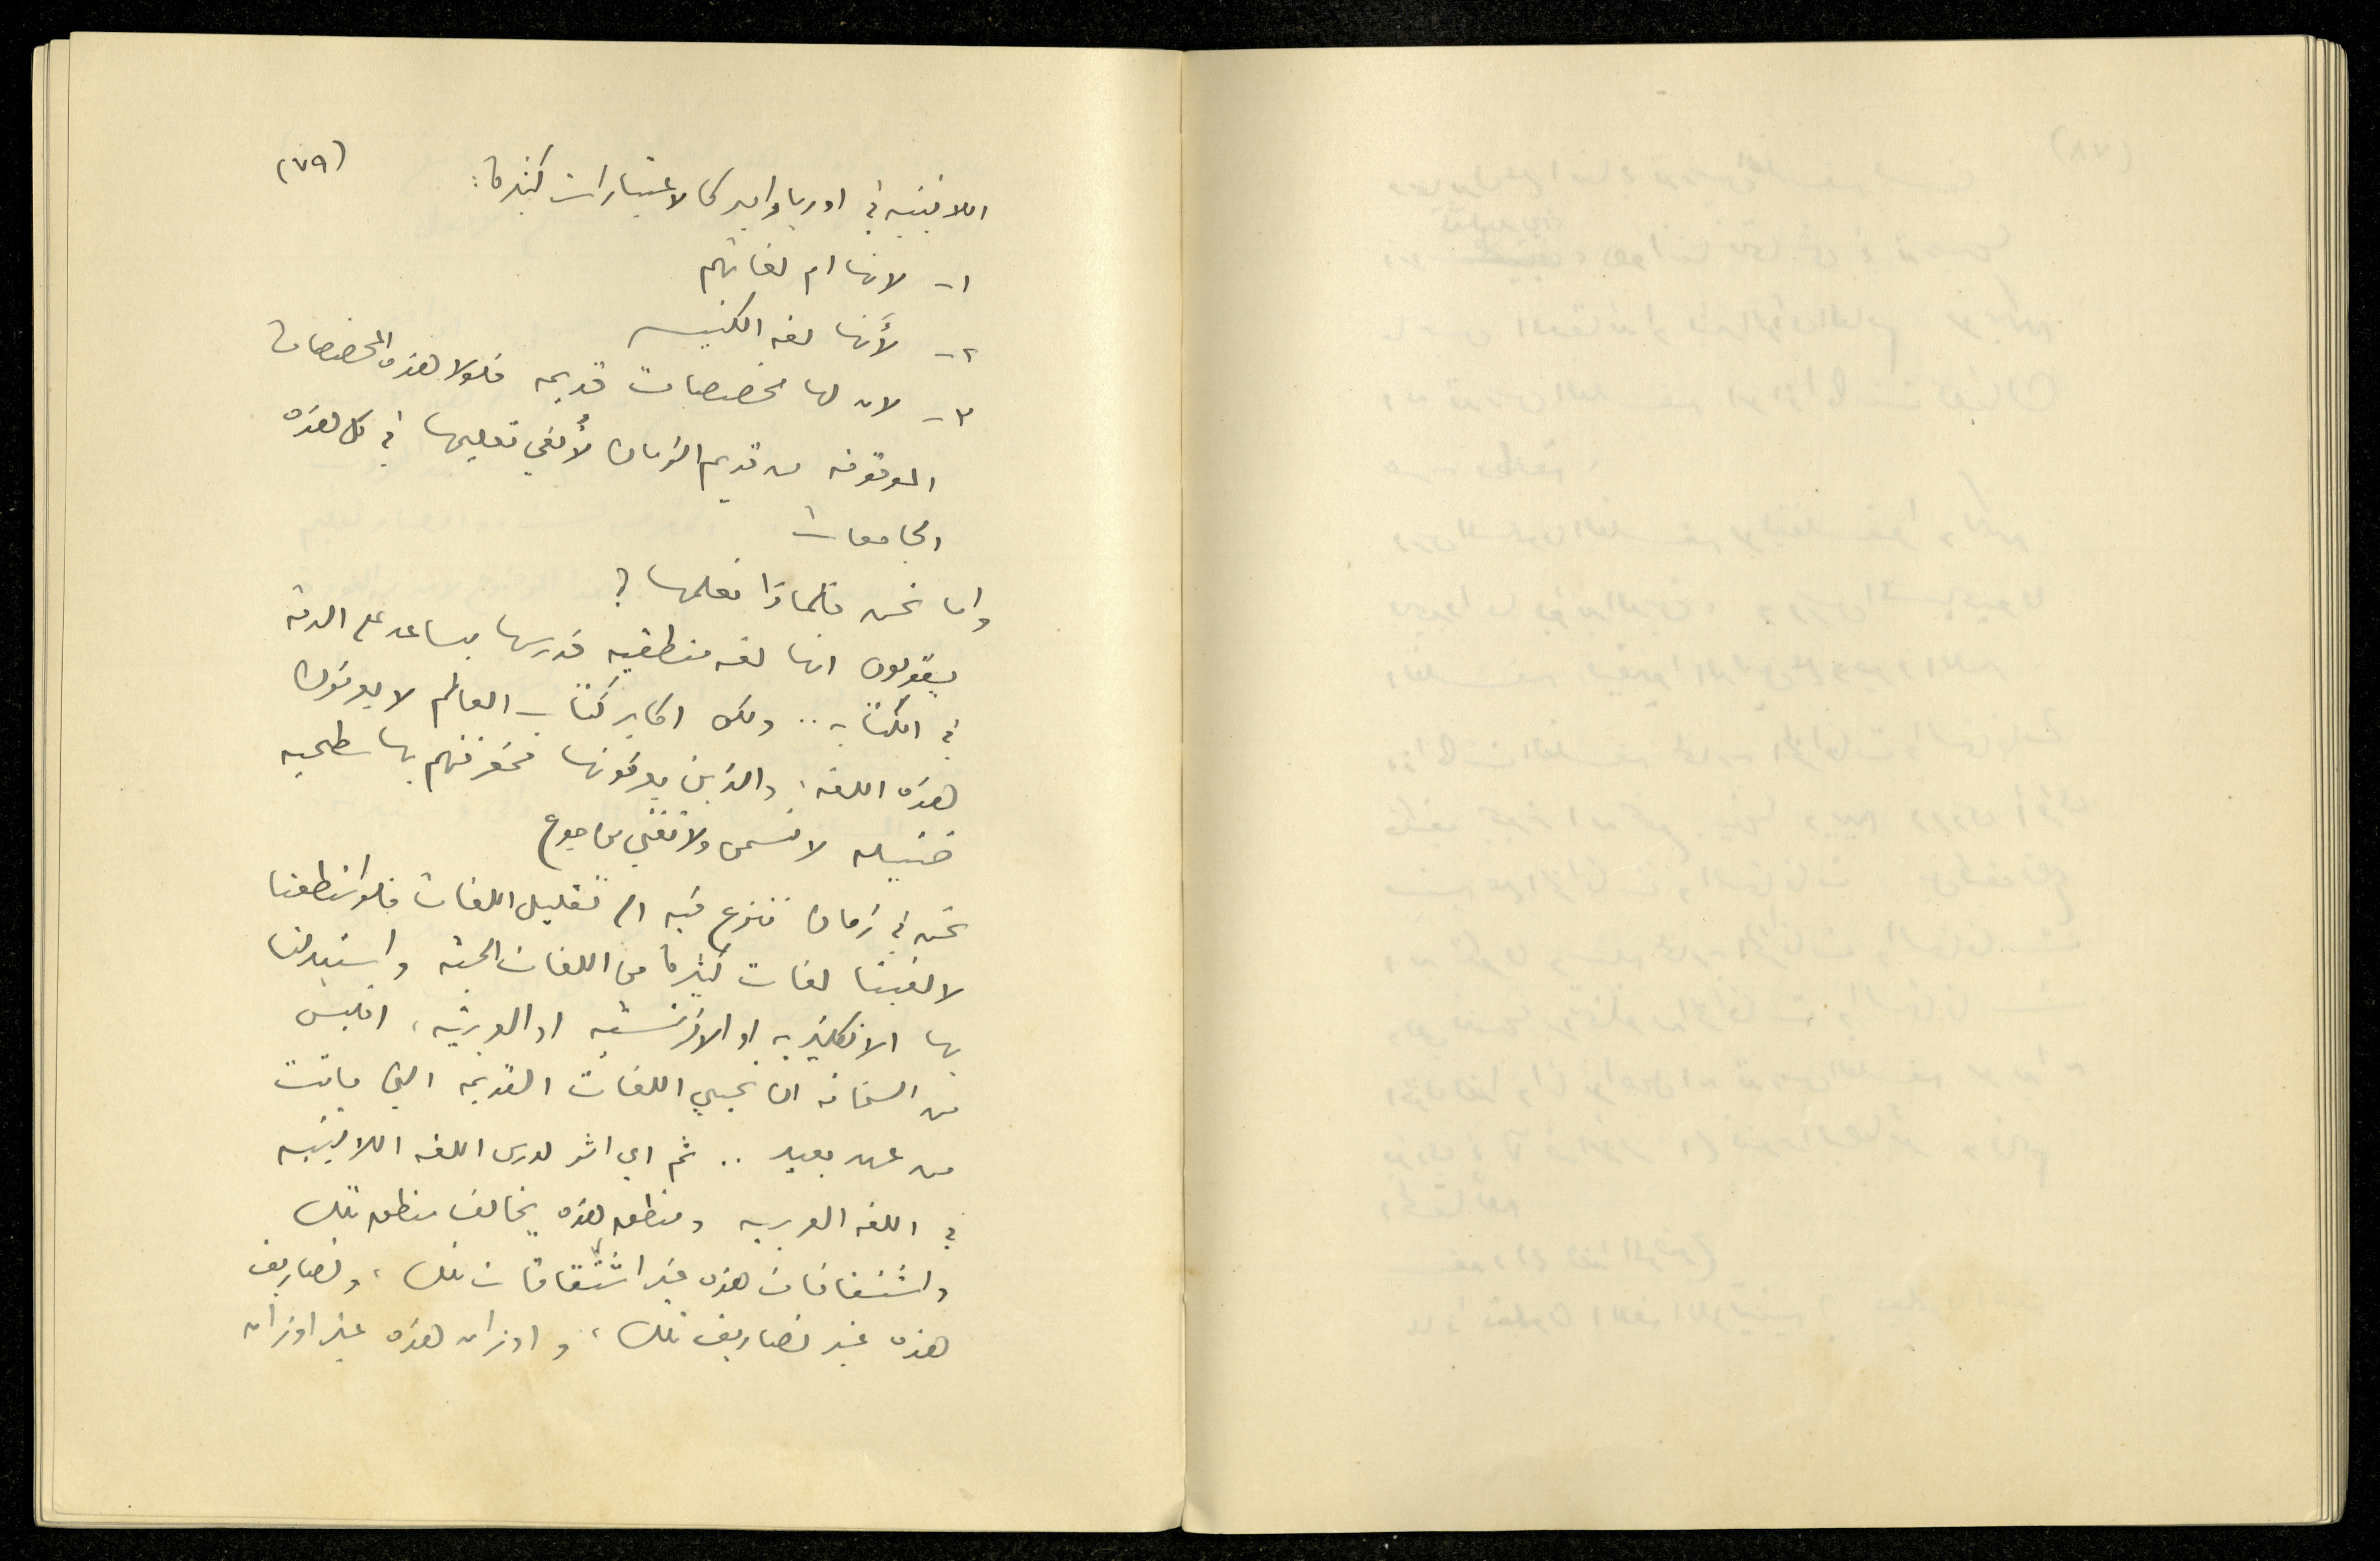 (٧٩)
اللاتينيه في اوربا واميركا لاعتبارات كثيرة:
١- لانها ام لغاتهم
٢- لأنها لغه الكنيسه
٣- لان لها مخصصات قديمه فلولا هذه المخصصات
الموقوفه من قديم الزمان لأُلغي تعليمها في كل هذه
الجامعات
واما نحن فلماذا نعلمها؟
يقولون انها لغه منطقيه فدرسها يساعد على الدقه
في الكتابه .. ولكن اكابر كتّاب العالم لا يعرفون
هذه اللغه؛ والذين يعرفونها فمعرفتهم بها سطحيه
ضئيله لا تسمن ولا تغني من جوع
نحن في زمان ننزع فيه الى تقليل اللغات فلو استطعنا
لالغينا لغات كثيرة من اللغات الحيّه واستبدلنا
بها الانكليزيه او الافرنسيّه او العربيّه، افليس
من السخافه ان نحيي اللغات القديمه التي ماتت
من عهد بعيد .. ثم اي اثر لدرس اللغه اللاتينيه
في اللغه العربيه ومنطق هذه يخالف منطق تلك
واشتقاقات هذه غير اشتقاقات تلك، وتصاريف
هذه غير تصاريف تلك، واوزان هذه غير اوزان